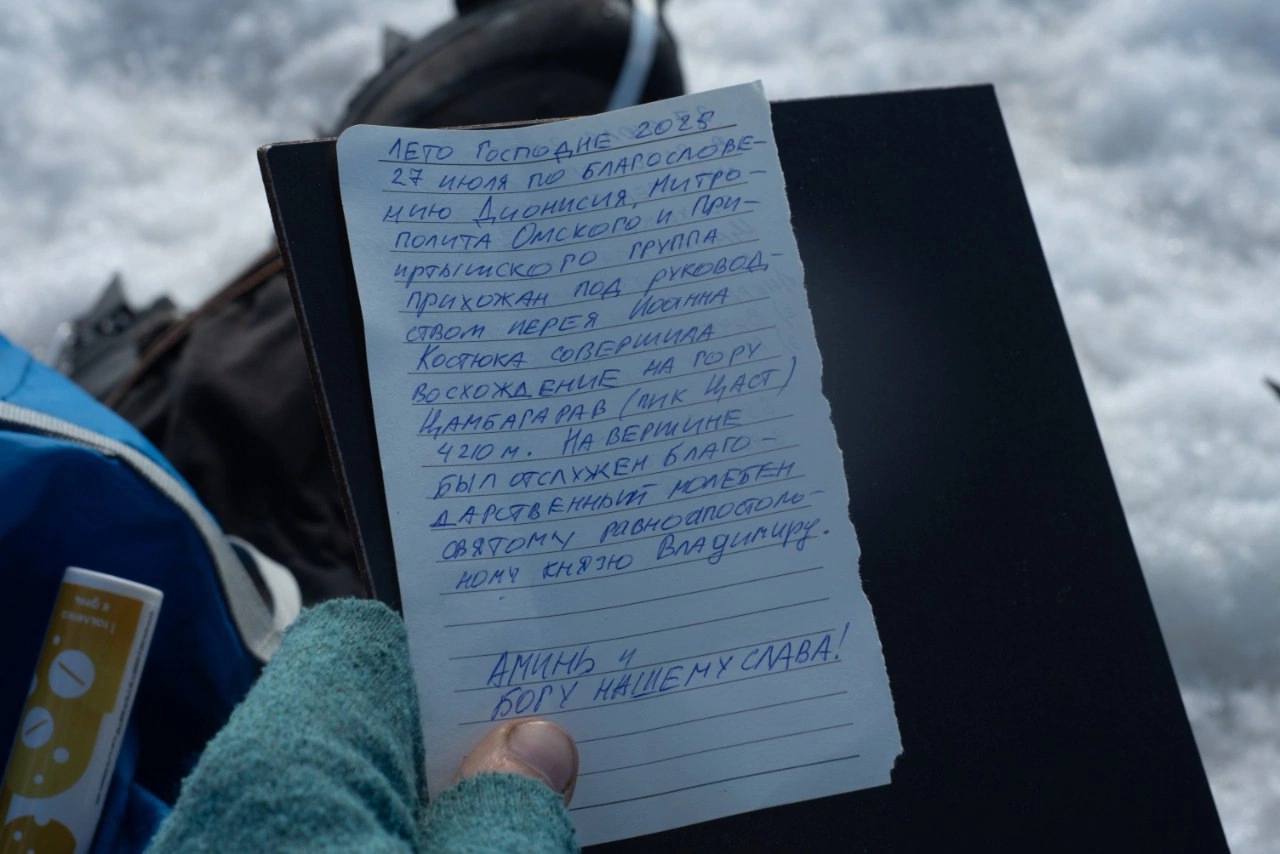 ЛЕТО ГОСПОДНЕ 2025
27 ИЮЛЯ ПО БЛАГОСЛОВЕ-
НИЮ ДИОНИСИЯ, МИТРО-
ПОЛИТА ОМСКОГО И ПРИ-
ИРТЫШСКОГО ГРУППА
ПРИХОЖАН ПОД РУКОВОД-
СТВОМ ИЕРЕЯ ИОАННА
КОСТЮКА СОВЕРШИЛА
ВОСХОЖДЕНИЕ НА ГОРУ
ЦАМБАГАРАВ (ПИК ЦАСТ)
4210 м. НА ВЕРШИНЕ
БЫЛ ОТСЛУЖЕН БЛАГО-
ДАРСТВЕННЫЙ МОЛЕБЕН
СВЯТОМУ РАВНОАПОСТОЛЬ-
НОМУ КНЯЗЮ ВЛАДИМИРУ.
АМИНЬ И
БОГУ НАШЕМУ СЛАВА!